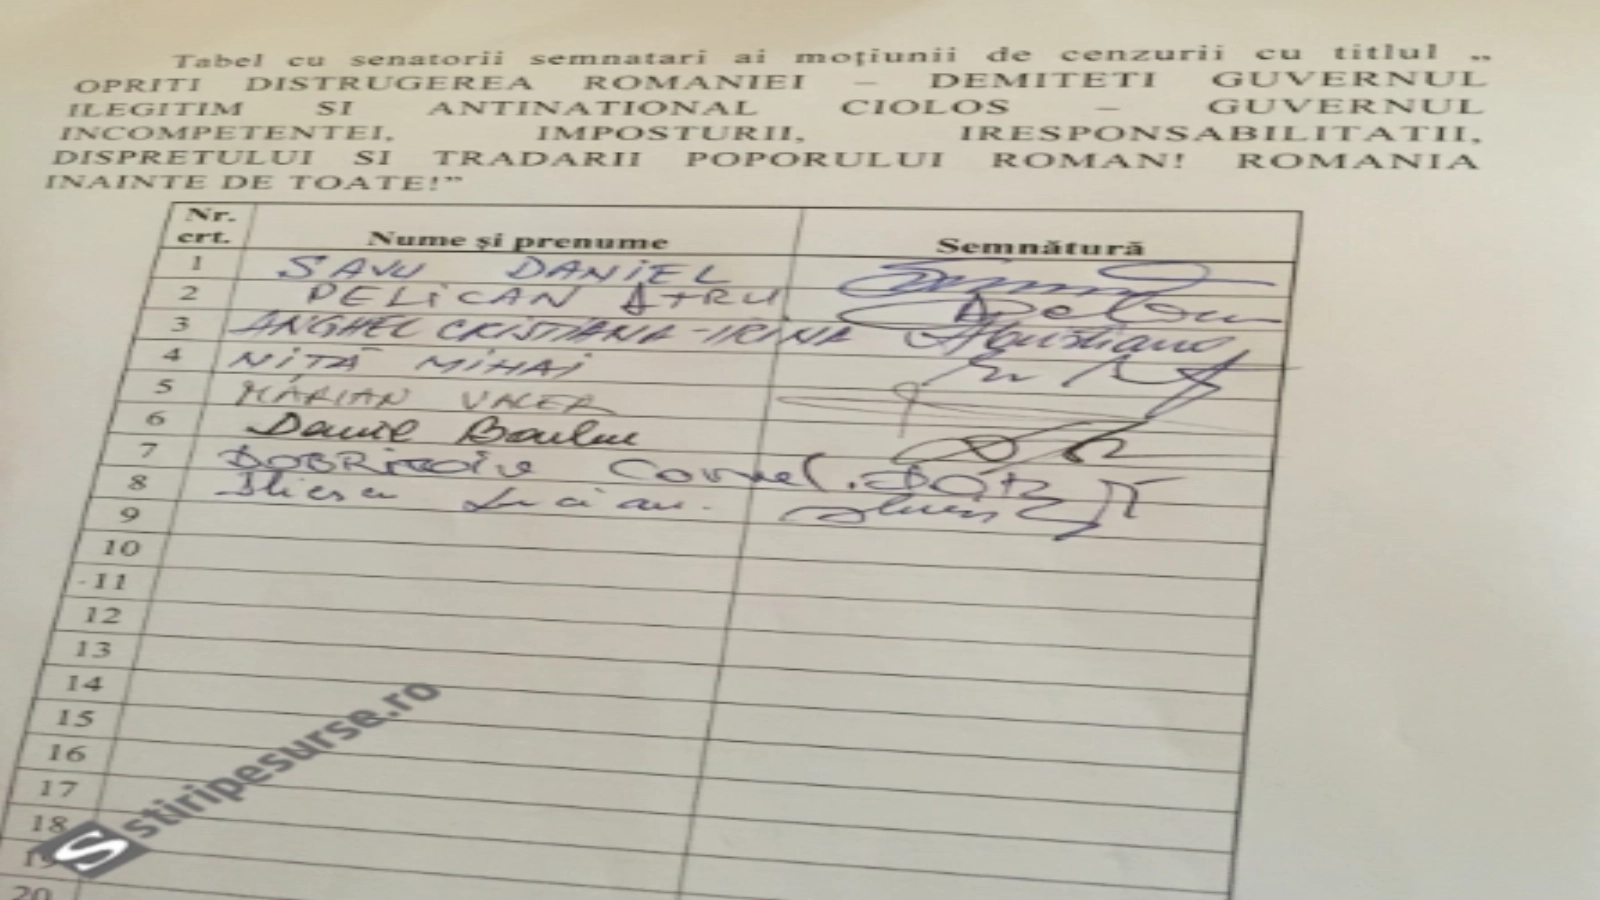 Tabel cu senatorii semnatari ai moțiunii de cenzurii cu titlul „
OPRITI DISTRUGEREA ROMANIEI – DEMITETI GUVERNUL
ILEGITIM SI ANTINATIONAL CIOLOS – GUVERNUL
INCOMPETENTEI, IMPOSTURII, IRESPONSABILITATII,
DISPRETULUI SI TRADARII POPORULUI ROMAN! ROMANIA
INAINTE DE TOATE!”
Nr. crt. Nume și prenume Semnătură
1 SAVU DANIEL
2 PELICAN
3 ANGHEL CRISTIANA-IRINA
4 NIȚĂ MIHAI
5 MARIAN VALER
6 Daniel
7 Cornel
8 Iliescu Lucian.
9
10
11
12
13
14
15
16
17
18
19
20
stiripesurse.ro